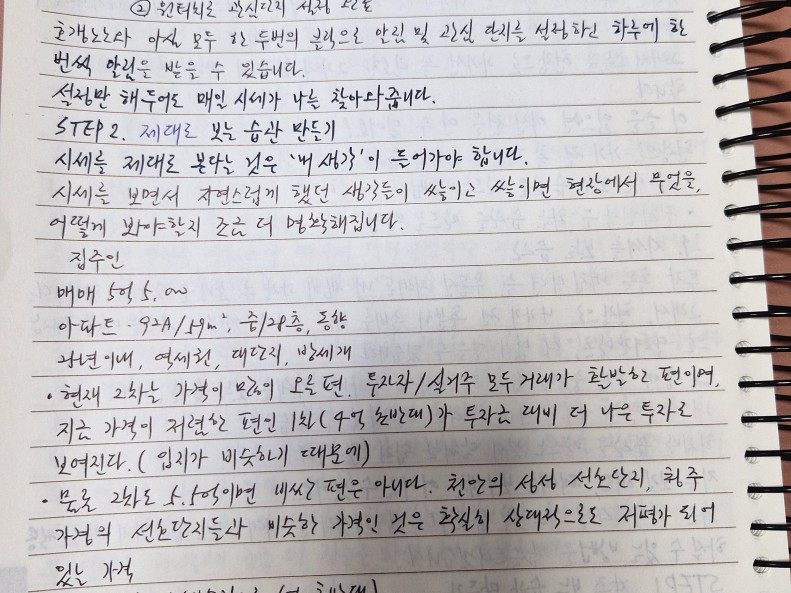 ② 원터치로 관심단지 설정
호갱노노와 아실 모두 한 두번의 클릭으로 알림 및 관심 단지를 설정하고 하루에 한
번씩 알림을 받을 수 있습니다.
설정만 해두어도 매일 시세가 나를 찾아와줍니다.
STEP 2. 제대로 보는 습관 만들기
시세를 제대로 본다는 것은 '내 생각'이 들어가야 합니다.
시세를 보면서 자연스럽게 했던 생각들이 쌓이고 쌓이면 현장에서 무엇을,
어떻게 봐야할지 조금 더 명확해집니다.
집주인
매매 5억 5,000
아파트 · 92A/59m, 중/28층, 동향
25년이내, 역세권, 대단지, 방세개
• 현재 2차는 가격이 많이 오른 편. 투자자/실거주 모두 거래가 활발한 편이며,
지금 가격이 저렴한 편인 1차(4억 초반대)가 투자금 대비 더 나은 투자로
보여진다. (입지가 비슷하기 때문에)
• 물론 2차도 5.5억이면 비싼 편은 아니다. 천안의 성성 선호단지, 청주
가경의 선호단지들과 비슷한 가격인 것은 확실히 상대적으로도 저평가 되어
있는 가격